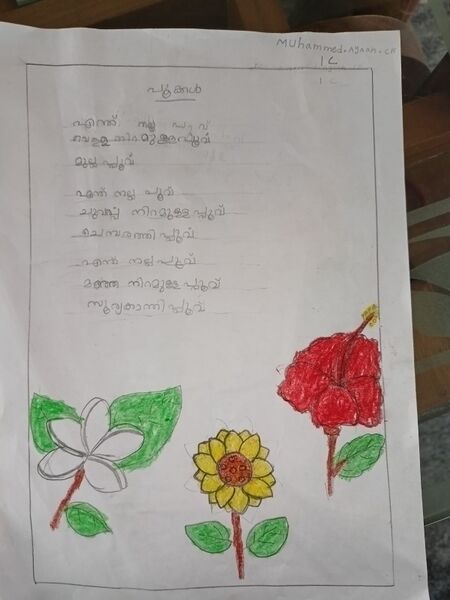 Muhammed.Ajnan.CK
1 C
1 C
പൂക്കൾ
എന്ത് നല്ല പൂവ്
വെള്ള നിറമുള്ള പൂവ്
മുല്ലപ്പൂവ്
എന്ത് നല്ല പൂവ്
ചുവപ്പ് നിറമുള്ള പൂവ്
ചെമ്പരത്തി പ്പൂവ്
എന്ത് നല്ല പൂവ്
മഞ്ഞ നിറമുള്ള പൂവ്
സൂര്യകാന്തി പ്പൂവ്